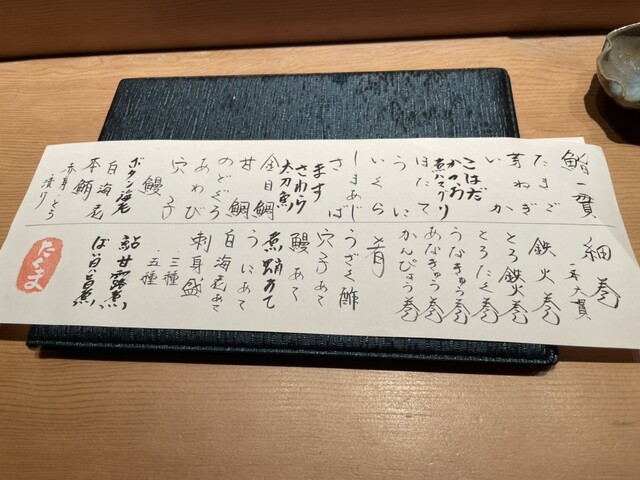 鮨一貫
たまご
芽ねぎ
いか
こはだ
かつお
煮ハマグリ
ほたて
うに
いくら
しまあじ
さば
ます
さわら
太刀魚
金目鯛
甘鯛
のどぐろ
あわび
穴子
鰻
ボタン海老
白海老
本鮪
赤身 とろ
漬け
細巻
鉄火巻
とろ鉄火巻
とろたく巻
うなきゅう巻
あなきゅう巻
かんぴょう巻
肴
うざく酢
穴子あて
鰻あて
煮蛸あて
うにあて
白海老あて
刺身盛
三種
五種
鮎甘露煮
ばい貝旨煮
たくま